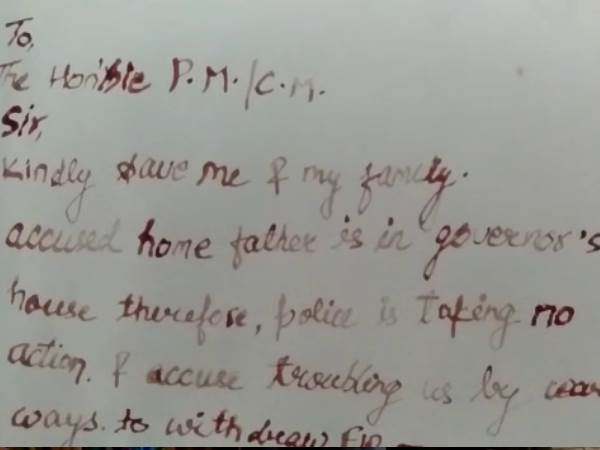 To,
The Hon'ble P.M./C.M.
Sir,
Kindly save me & my family.
accused home father is in governor's
house therefore, police is taking no
action. & accuse troubling us by
ways. to withdraw